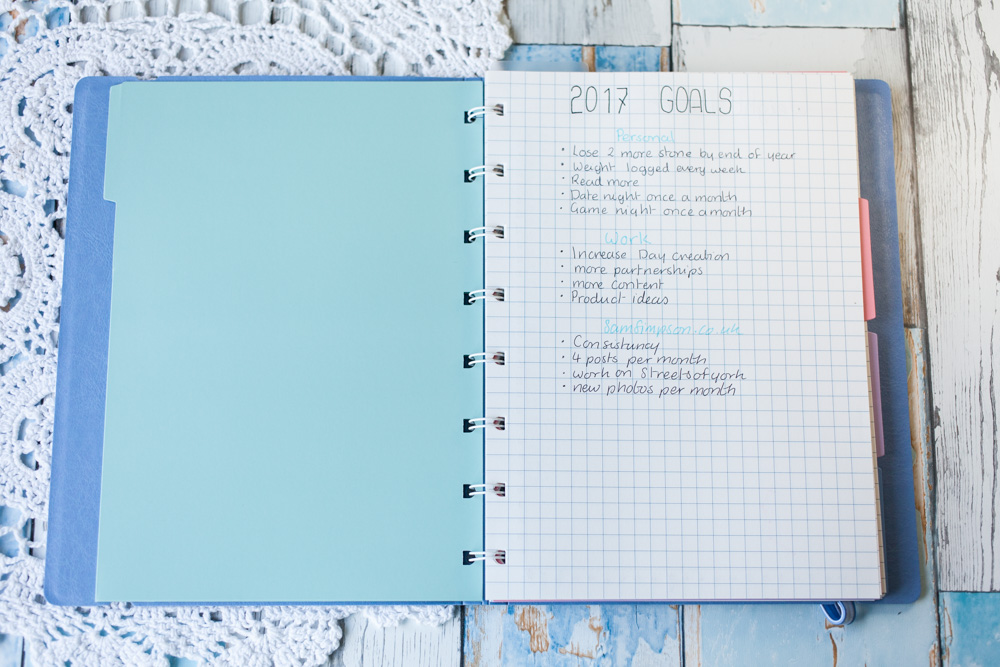 2017 GOALS
Personal
• Lose 2 more stone by end of year
• Weight logged every week
• Read more
• Date night once a month
• Game night once a month
Work
• Increase Day creation
• more partnerships
• more content
• Product ideas
SamSimpson.co.uk
• Consistuncy
• 4 posts per month
• work on Streets of york
• new photos per month